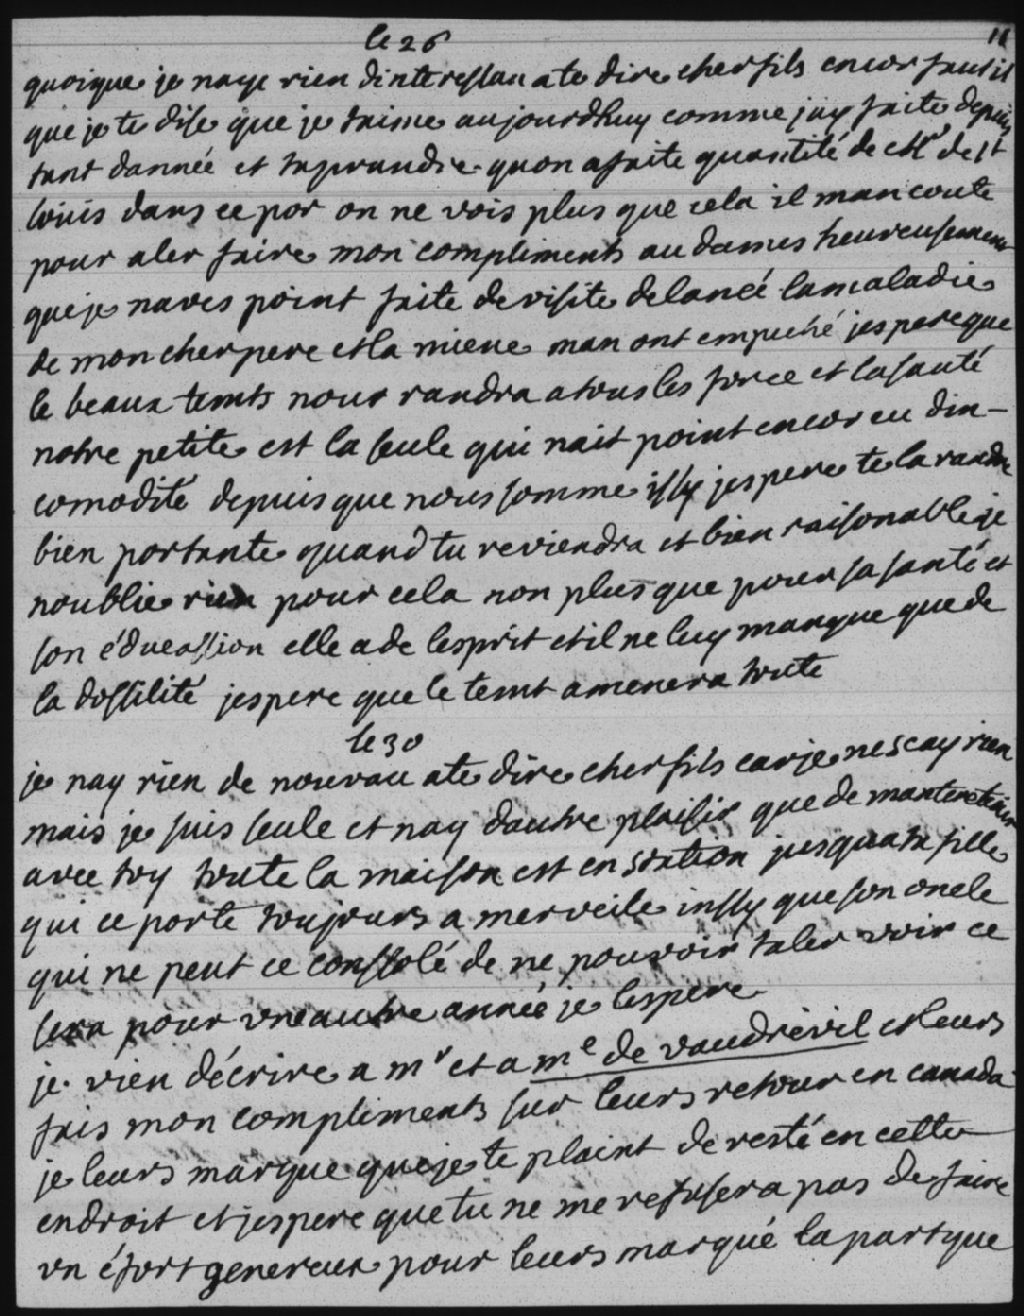 le 26
11
quoique je naye rien dinteressan a te dire cher fils encor fautil
que je te dise que je taime aujourdhuy comme jay faite depuis
tant dannée et taprandre quon a faite quantité de chr de st
louis dans ce por on ne vois plus que cela il man coute
pour aler faire mon compliments au dames heureusement
que je naves point faite de visite de laneé la maladie
de mon cher pere et la miene man ont empeché jespere que
le beaux temts nous randra a tous les force et la santé
notre petite est la seule qui nait point encor eu din-
comodité depuis que nous somme issy jespere te la randre
bien portante quand tu reviendra et bien raisonable je
noublie rien pour cela non plus que pour sa santé et
son éducassion elle a de lesprit et il ne luy manque que de
la dossilité jespere que le temt amenera toute
le 30
je nay rien de nouvau a te dire cher fils car je ne scay rien
mais je suis seule et nay dautre plaisir que de mantretenir
avec toy toute la maison est en station jusqua ta fille
qui ce porte toujours a merveile inssy que son oncle
qui ne peut ce conssolé de ne pouvoir taler voir ce
sera pour une autre année je lespere
je vien décrire a mr et a me de vaudrevil et leurs
fais mon compliments sur leurs retour en canada
je leurs marque que je te plaint de resté en cette
endroit et jespere que tu ne me refusera pas de faire
un éfort genereux pour leurs marqué la part que